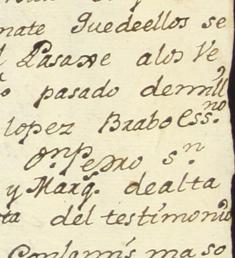 nate Quedeellos se
Pasaxe alos Ve
pasado demill
lopez Brabo Ess.no
On. Pedro s.n
y Marq. dealta
ta del testimonio
Conlamis maso